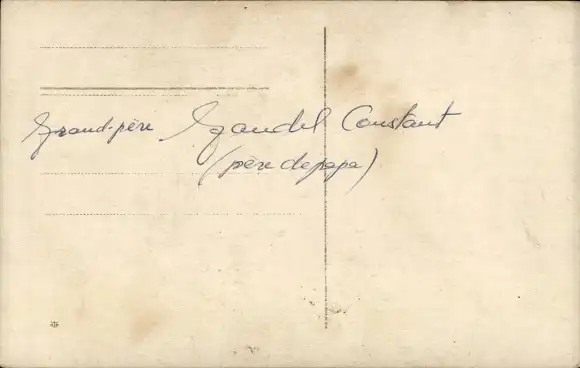 Grand-père Gaudel Constant
(père de papa)